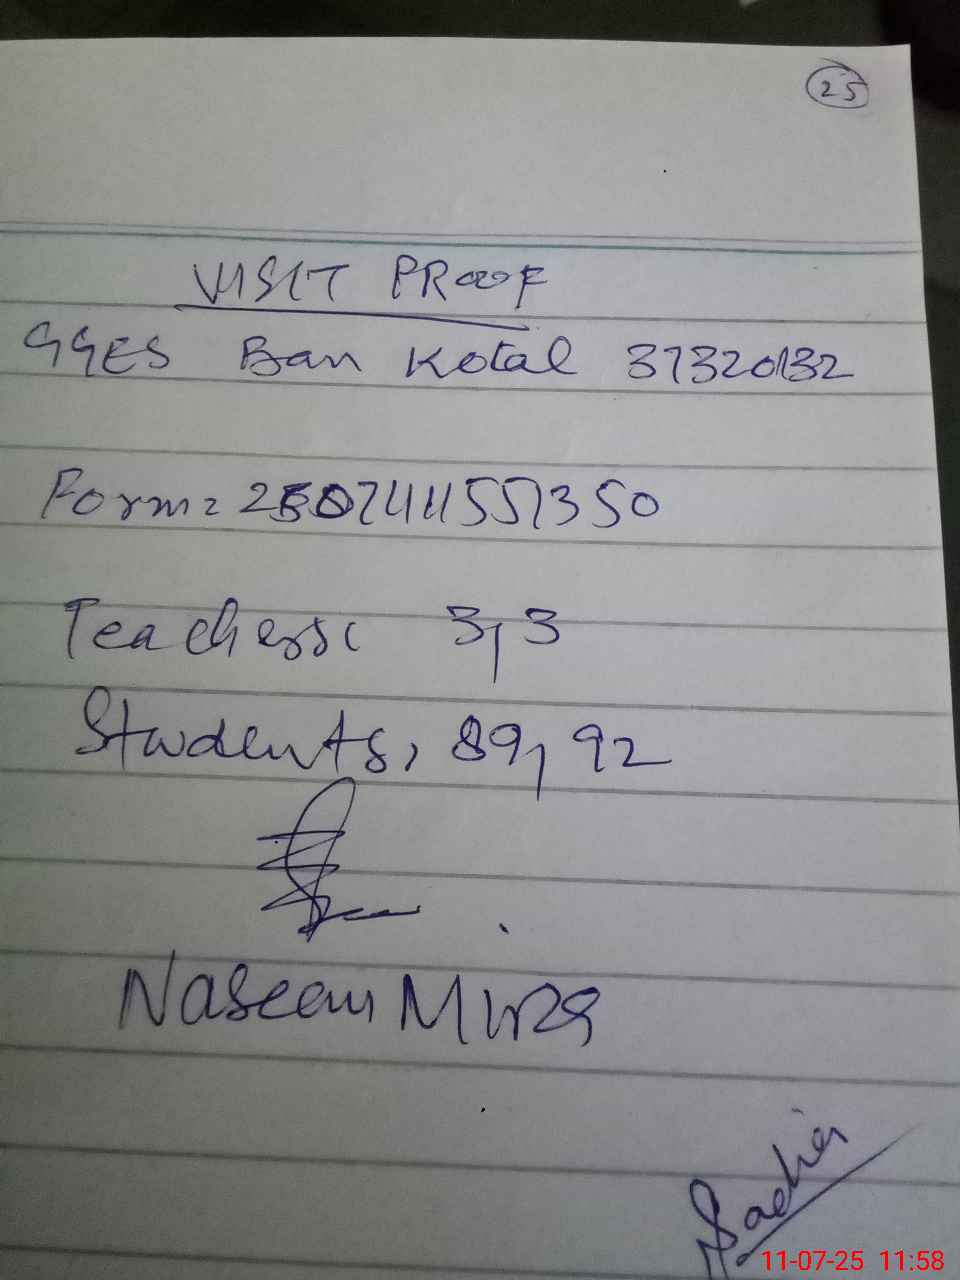 25
VISIT PROOF
GGES Ban Kotal 37320132
Form: 2507411551350
Teachers: 3, 3
Students, 89, 92
Naseem Mirza
Sadia
11-07-25 11:58